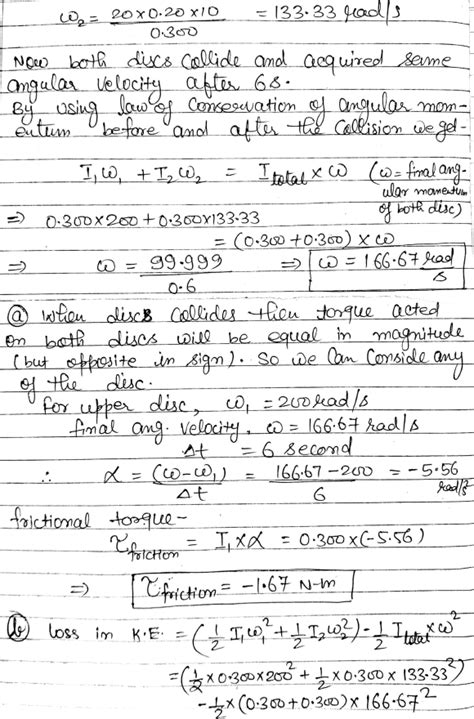 ω₂ = 20×0.20×10 / 0.300 = 133.33 rad/s
Now both discs collide and acquired same
angular velocity after 6s.
By using law of conservation of angular mom-
entum before and after the collision we get-
I₁ω₁ + I₂ω₂ = I_total × ω (ω = final ang-
ular momentum
of both disc)
⇒ 0.300×200 + 0.300×133.33
= (0.300 + 0.300) × ω
⇒ ω = 99.999 / 0.6 ⇒ ω = 166.67 rad/s
(a) When discs collides then torque acted
on both discs will be equal in magnitude
(but opposite in sign). So we can conside any
of the disc.
for upper disc, ω₁ = 200 rad/s
final ang. velocity, ω = 166.67 rad/s
Δt = 6 second
∴ α = (ω-ω₁) / Δt = 166.67 - 200 / 6 = -5.56 rad/s²
frictional torque-
τ_friction = I₁×α = 0.300×(-5.56)
⇒ τ_friction = -1.67 N-m
(b) loss in K.E. = (1/2 I₁ω₁² + 1/2 I₂ω₂²) - 1/2 I_total × ω²
= (1/2 × 0.300×200² + 1/2 × 0.300 × 133.33²)
- 1/2 × (0.300 + 0.300) × 166.67²